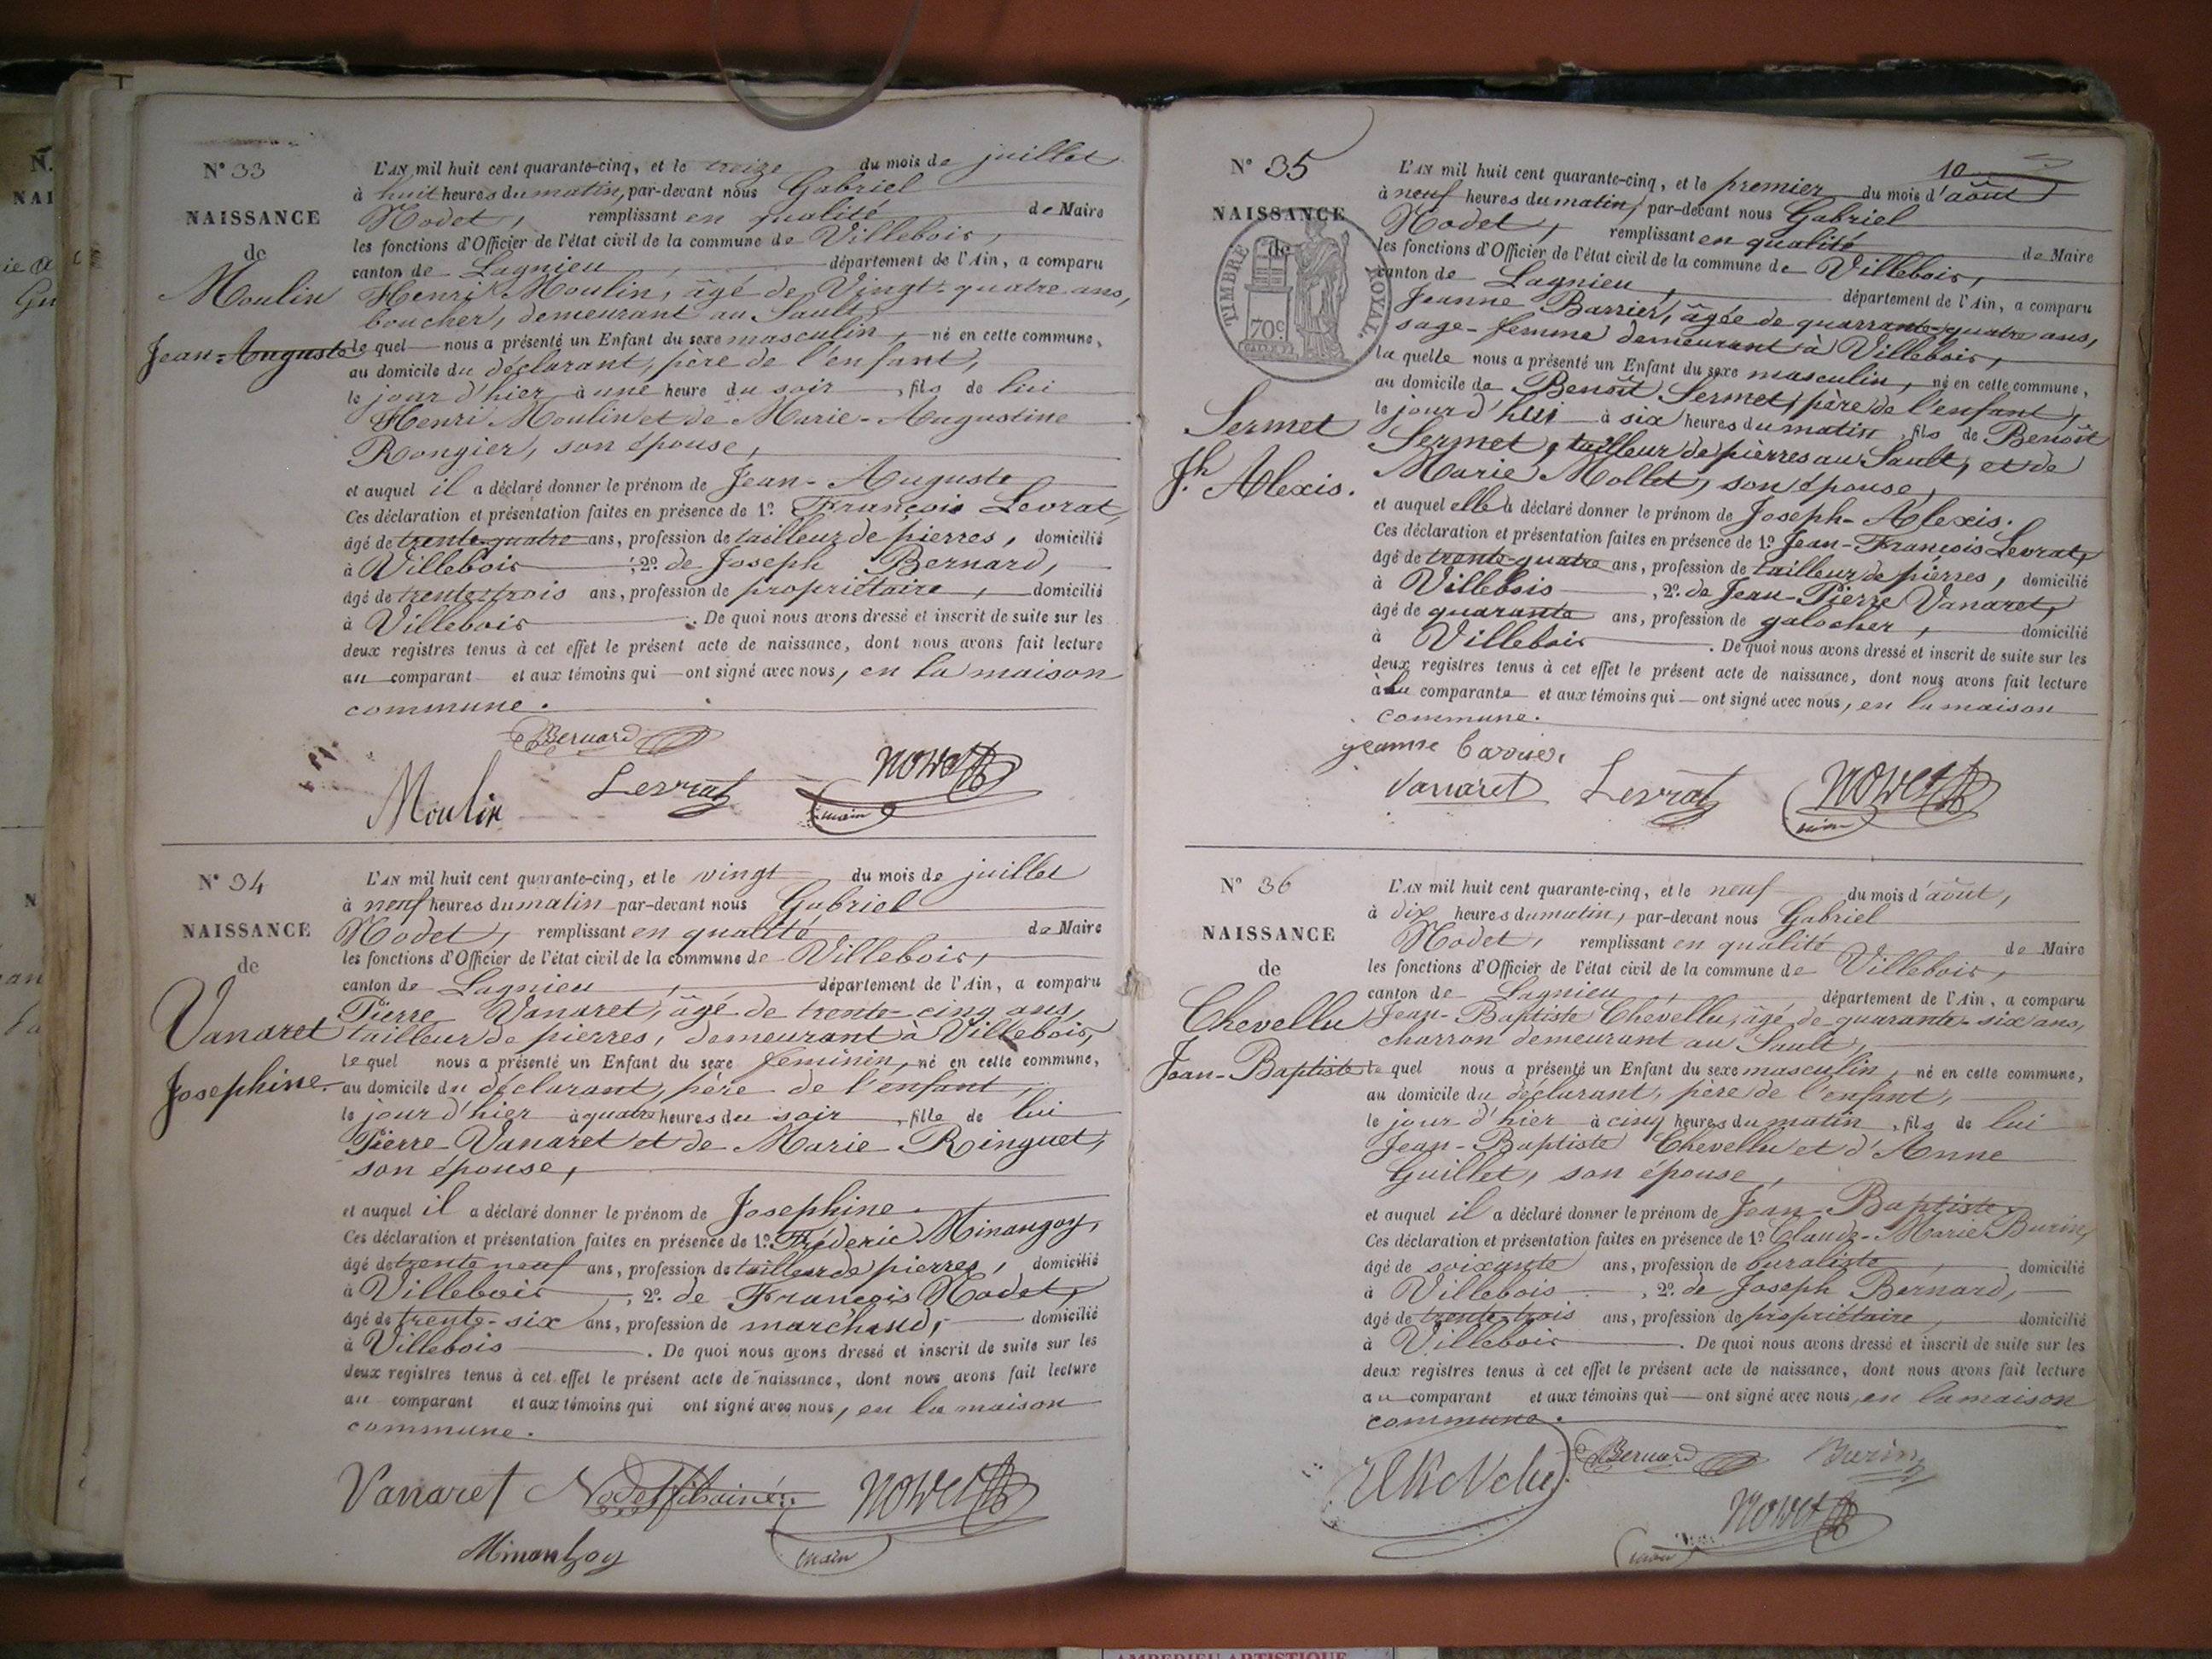 N° 33
NAISSANCE
de
Moulin
Jean-Auguste
L'AN mil huit cent quarante-cinq, et le treize du mois de juillet
à huit heures du matin, par-devant nous Gabriel
Nodet, remplissant en qualité de Maire
les fonctions d'Officier de l'état civil de la commune de Villebois,
canton de Lagnieu, département de l'Ain, a comparu
Henri Moulin, âgé de Vingt-quatre ans,
boucher, demeurant au Sault,
le quel nous a présenté un Enfant du sexe masculin, né en cette commune,
au domicile du déclarant, père de l'enfant,
le jour d'hier, à une heure du soir, fils de lui
Henri Moulin et de Marie-Augustine
Rongier, son épouse,
et auquel il a déclaré donner le prénom de Jean-Auguste
Ces déclaration et présentation faites en présence de 1° François Levrat,
âgé de trente-quatre ans, profession de tailleur de pierres, domicilié
à Villebois ; 2° de Joseph Bernard,
âgé de trente-trois ans, profession de propriétaire, domicilié
à Villebois . De quoi nous avons dressé et inscrit de suite sur les
deux registres tenus à cet effet le présent acte de naissance, dont nous avons fait lecture
au comparant et aux témoins qui ont signé avec nous, en la maison
commune.
Bernard
Moulin Levrat Nodet
maire
N° 34
NAISSANCE
de
Vanaret
Josephine.
L'AN mil huit cent quarante-cinq, et le vingt du mois de juillet
à neuf heures du matin par-devant nous Gabriel
Nodet, remplissant en qualité de Maire
les fonctions d'Officier de l'état civil de la commune de Villebois,
canton de Lagnieu, département de l'Ain, a comparu
Pierre Vanaret, âgé de trente-cinq ans,
tailleur de pierres, demeurant à Villebois,
le quel nous a présenté un Enfant du sexe féminin, né en cette commune,
au domicile du déclarant, père de l'enfant,
le jour d'hier à quatre heures du soir, fille de lui
Pierre Vanaret et de Marie Ringuet,
son épouse,
et auquel il a déclaré donner le prénom de Josephine.
Ces déclaration et présentation faites en présence de 1° Fréderic Minangoy,
âgé de trente neuf ans, profession de tailleur de pierres, domicilié
à Villebois ; 2° de François Nodet,
âgé de trente-six ans, profession de marchand, domicilié
à Villebois . De quoi nous avons dressé et inscrit de suite sur les
deux registres tenus à cet effet le présent acte de naissance, dont nous avons fait lecture
au comparant et aux témoins qui ont signé avec nous, en la maison
commune.
Vanaret Nodet Nodet
maire
Minangoy
10
N° 35
NAISSANCE
de
TIMBRE ROYAL.
70c
Sermet
Jh. Alexis.
L'AN mil huit cent quarante-cinq, et le premier du mois d'août
à neuf heures du matin, par-devant nous Gabriel
Nodet, remplissant en qualité de Maire
les fonctions d'Officier de l'état civil de la commune de Villebois,
canton de Lagnieu, département de l'Ain, a comparu
Jeanne Barrier, âgée de quarrante-quatre ans,
sage-femme demeurant à Villebois,
la quelle nous a présenté un Enfant du sexe masculin, né en cette commune,
au domicile de Benoît Sermet, père de l'enfant,
le jour d'hui à six heures du matin, fils de Benoît
Sermet, tailleur de pierres au Sault, et de
Marie Mollet, son épouse,
et auquel elle a déclaré donner le prénom de Joseph-Alexis.
Ces déclaration et présentation faites en présence de 1° Jean-François Levrat,
âgé de trente-quatre ans, profession de tailleur de pierres, domicilié
à Villebois , 2° de Jean-Pierre Vanaret,
âgé de quarante ans, profession de galocher, domicilié
à Villebois . De quoi nous avons dressé et inscrit de suite sur les
deux registres tenus à cet effet le présent acte de naissance, dont nous avons fait lecture
à la comparante et aux témoins qui ont signé avec nous, en la maison
commune.
jeanne barrier
Vanaret Levrat Nodet
N° 36
NAISSANCE
de
Chevellu
Jean-Baptiste
L'AN mil huit cent quarante-cinq, et le neuf du mois d'août,
à dix heures du matin, par-devant nous Gabriel
Nodet, remplissant en qualité de Maire
les fonctions d'Officier de l'état civil de la commune de Villebois,
canton de Lagnieu, département de l'Ain, a comparu
Jean-Baptiste Chevellu, âgé de quarante-six ans,
charron demeurant au Sault,
le quel nous a présenté un Enfant du sexe masculin, né en cette commune,
au domicile du déclarant, père de l'enfant,
le jour d'hier à cinq heures du matin, fils de lui
Jean-Baptiste Chevellu et d'Anne
Guillet, son épouse,
et auquel il a déclaré donner le prénom de Jean-Baptiste.
Ces déclaration et présentation faites en présence de 1° Claude-Marie Burin,
âgé de soixante ans, profession de buraliste, domicilié
à Villebois , 2° de Joseph Bernard,
âgé de trente-trois ans, profession de propriétaire, domicilié
à Villebois . De quoi nous avons dressé et inscrit de suite sur les
deux registres tenus à cet effet le présent acte de naissance, dont nous avons fait lecture
au comparant et aux témoins qui ont signé avec nous, en la maison
commune.
Bernard Burin
Nodet
AMBERIEU ARTISTIQUE